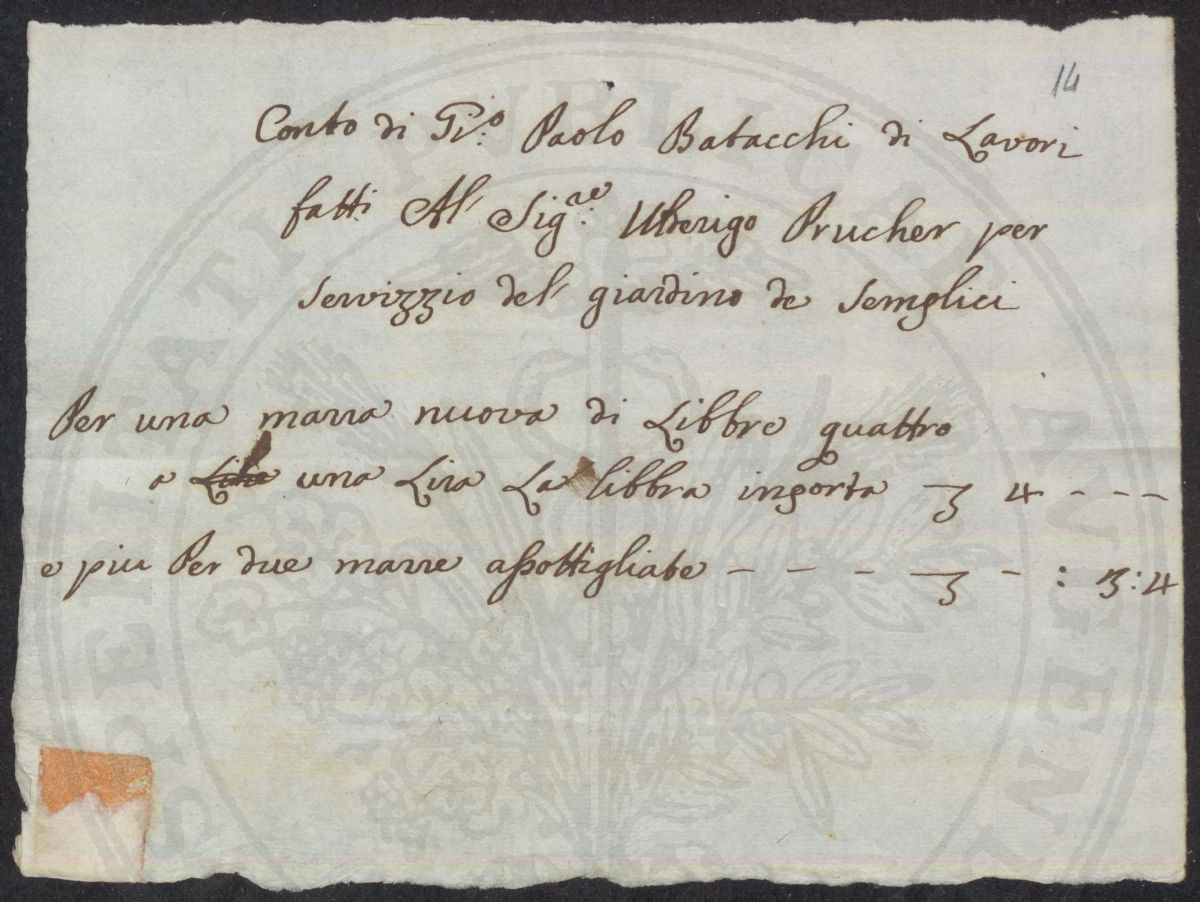 14
Conto di Gio. Paolo Batacchi di Lavori
fatti Al' Sig.re Ulderigo Prucher per
servizzio del' giardino de Semplici
Per una marra nuova di Libbre quattro
a una Lira La libbra inporta 4 - - -
e piu Per due marre assottigliate - - - - : 3:4